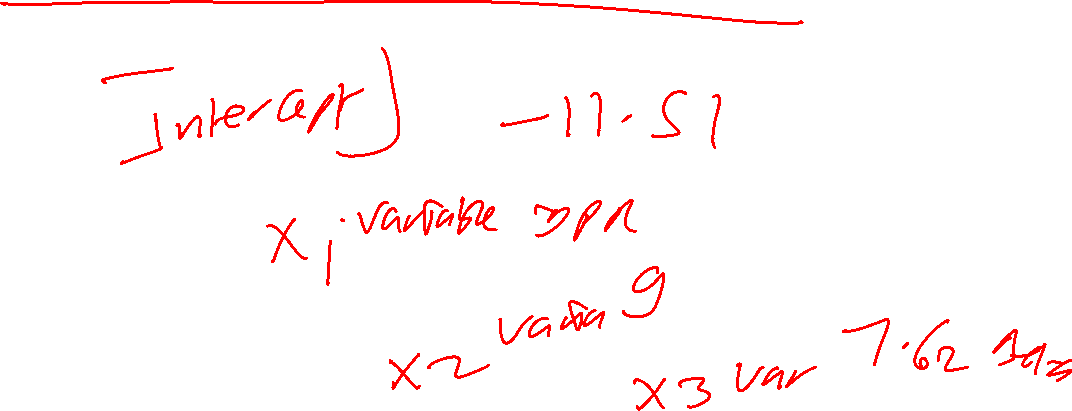 Intercept) -11.51
X1 variable
X2 9
X3 var 7.62